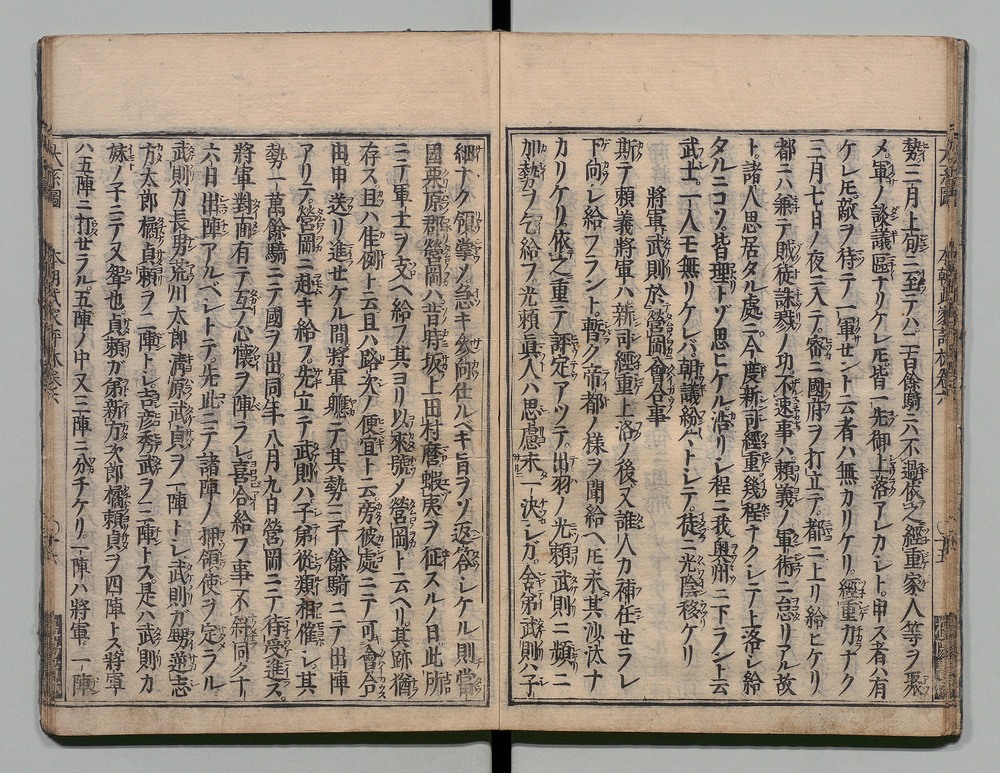 勢三月上旬ニ至テハ二百餘騎ニハ不過依之經重家人等ヲ聚
メ軍ノ談議區ナリケレ𪜈皆一先御上洛アレカシト申ス者ハ有
ケレ𪜈敵ヲ待テ一軍セント云者ハ無カリケリ經重力ナク
三月七日ノ夜ニ入テ密ニ國府ヲ打立テ都ニ上リ給ヒケリ
都ニハ兼テ則徒誅戮ノ功不速事ハ頼義ノ軍術ニ怠リアル故
ト諸人思居タル處ニ今度新司經重幾程ナクシテ上洛シ給
タルニコソ皆理トゾ思ヒケル浩リシ程ニ我奥州ニ下ラント云
武士一人モ無リケレバ朝議紛々トシテ徒ニ光陰移ケリ
將軍武則於營岡會合事
斯テ頼義將軍ハ新司經重上洛ノ後又誰人カ補任セラレ
下向シ給フラント暫ク帝都ノ様ヲ聞給ヘ𪜈未其沙汰ナ
カリケリ依之重テ評定アツテ出羽ノ光頼武則ニ頻ニ
加勢ヲ乞給フ光頼眞人ハ思慮未一決シガ舎弟武則ハ子
細ナク領掌メ急キ參向仕ルベキ旨ヲゾ返答シケル則當
國栗原郡營岡ハ昔時坂上田村麿蝦夷ヲ征スルノ日此所
ニテ軍士ヲ支ヘ給フ其ヨリ以來號メ營岡ト云ヘリ其跡猶
存ス且ハ佳例ト云且ハ路次ノ便宜ト云旁彼處ニテ可會合
由申送リ進セケル間將軍軈テ其勢三千餘騎ニテ出陣
アリテ營岡ニ赴キ給フ先立テ武則ハ子弟從類相催シ其
勢一萬餘騎ニテ國ヲ出同年八月九日營岡ニテ待受進ス
將軍對面有テ互ノ心懷ヲ陣フシ喜合給フ事不斜同クナ
六日出陣アルベシトテ先此ニテ諸陣ノ押領使ヲ定ラル
武則ガ長男荒川太郎清原武貞ヲ一陣トシ武則ガ甥遊志
方太郎橘貞頼ヲ二陣トシ吉彦秀武ヲ三陣トス是ハ武則カ
妹ノ子ニテ又聟也貞頼ガ弟新方次郎橘頼貞ヲ四陣トス將軍
ハ五陣ニ打セラル五陣ノ中又三陣ニ分チケリ一陣ハ將軍一陣